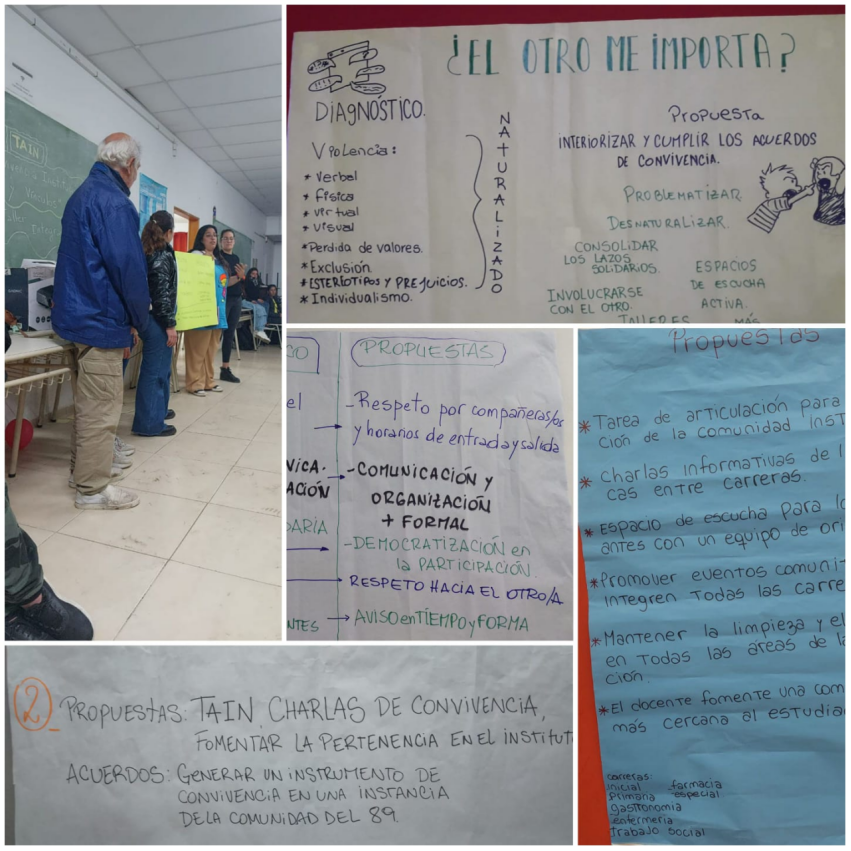 TAIN
¿EL OTRO ME IMPORTA?
DIAGNÓSTICO.
Violencia:
* Verbal
* física
* virtual
* visual
* Perdida de valores.
* Exclusión
* ESTERIOTIPOS Y PREJUICIOS.
* Individualismo.
NATURALIZADO
Propuesta
INTERIORIZAR Y CUMPLIR LOS ACUERDOS
DE CONVIVENCIA.
PROBLEMATIZAR
DESNATURALIZAR.
CONSOLIDAR
LOS LAZOS
SOLIDARIOS.
INVOLUCRARSE
CON EL OTRO.
TALLERES
ESPACIOS
DE ESCUCHA
ACTIVA.
MÁS
CO
PROPUESTAS
el
- Respeto por compañeras/os
y horarios de entrada y salida
NICA-
ACIÓN
- COMUNICACIÓN Y
ORGANIZACIÓN
+ FORMAL
DARÍA
- DEMOCRATIZACIÓN en
la PARTICIPACIÓN.
RESPETO HACIA EL OTRO/A
NTES
AVISO en TIEMPO y FORMA
Propuestas
* Tarea de articulación para
ción de la comunidad inst
* Charlas informativas de l
cas entre carreras.
* Espacio de escucha para lo
antes con un equipo de ori
* Promover eventos comunit
integren todas las carre
* Mantener la limpieza y el
en todas las áreas de la
ción.
* El docente fomente una com
más cercana al estudia
carreras:
inicial farmacia
primaria especial
gastronomia
enfermeria
trabajo social
2_ PROPUESTAS: TAIN, CHARLAS DE CONVIVENCIA,
FOMENTAR LA PERTENENCIA EN EL INSTITUT
ACUERDOS: GENERAR UN INSTRUMENTO DE
CONVIVENCIA EN UNA INSTANCIA
DE LA COMUNIDAD DEL 89.